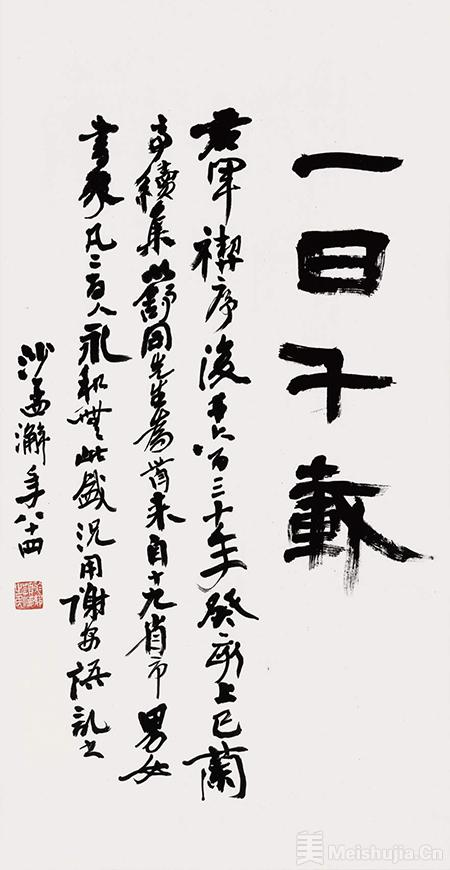 一日千載
右軍禊序後千六百三十年癸亥上巳蘭
亭續集以舒同先生為首來自十九省市男女
書家凡二百人永和無此盛況用謝安語記之
沙孟澥年八十四
美 Meishujia.Cn